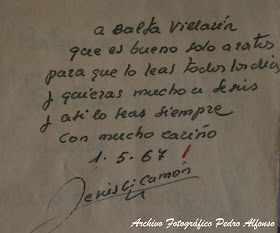 a Balta Villarín
que es bueno solo a ratos
para que lo leas todos los días
y quieras mucho a Jesús
y asi lo seas siempre
con mucho cariño
1.5.67
Jesús G. Camón
Archivo Fotográfico Pedro Alfonso